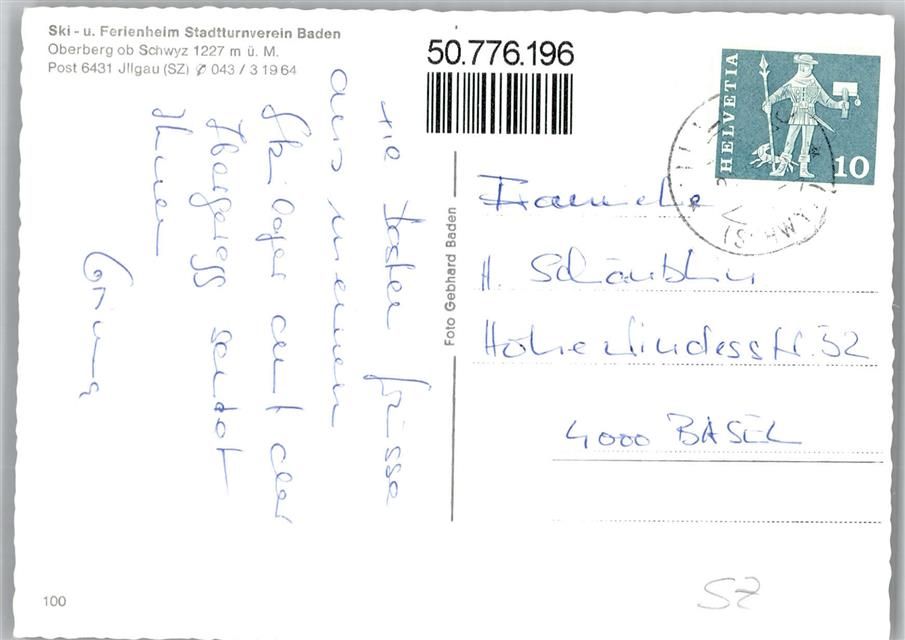 Ski- u. Ferienheim Stadtturnverein Baden
Oberberg ob Schwyz 1227 m ü. M.
Post 6431 Jllgau (SZ) ✆ 043 / 3 19 64
50.776.196
HELVETIA
10
(SCHWYZ)
Die besten Grüsse
aus meinem
Skilager auf der
Ibergeregg sendet
Ihnen
Foto Gebhard Baden
H. Schäublin
Hohe Windesstr. 32
4000 BASEL
100
SZ